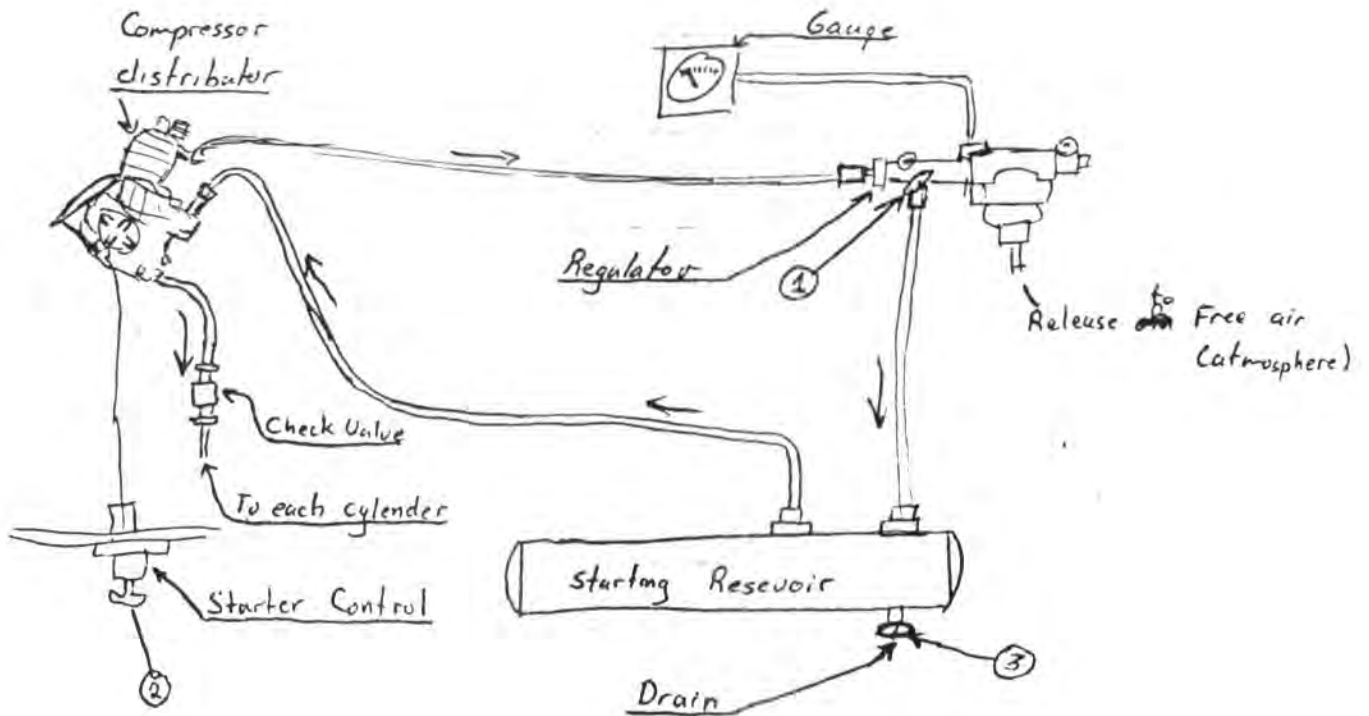 Compressor
distributor
Gauge
Regulator
1
Release to Free air
(atmosphere)
Check Valve
To each cylender
Starting Resevoir
Starter Control
2
3
Drain